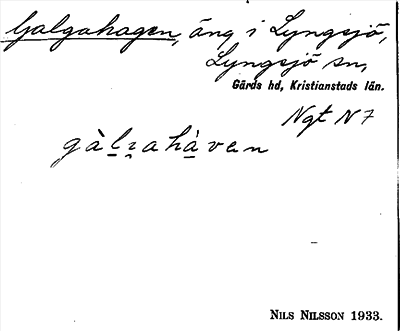 Galgahagen, äng i Lyngsjö,
Lyngsjö sn,
Gärds hd, Kristianstads län.
Ngt N 7
gàlɀahàven
NILS NILSSON 1933.